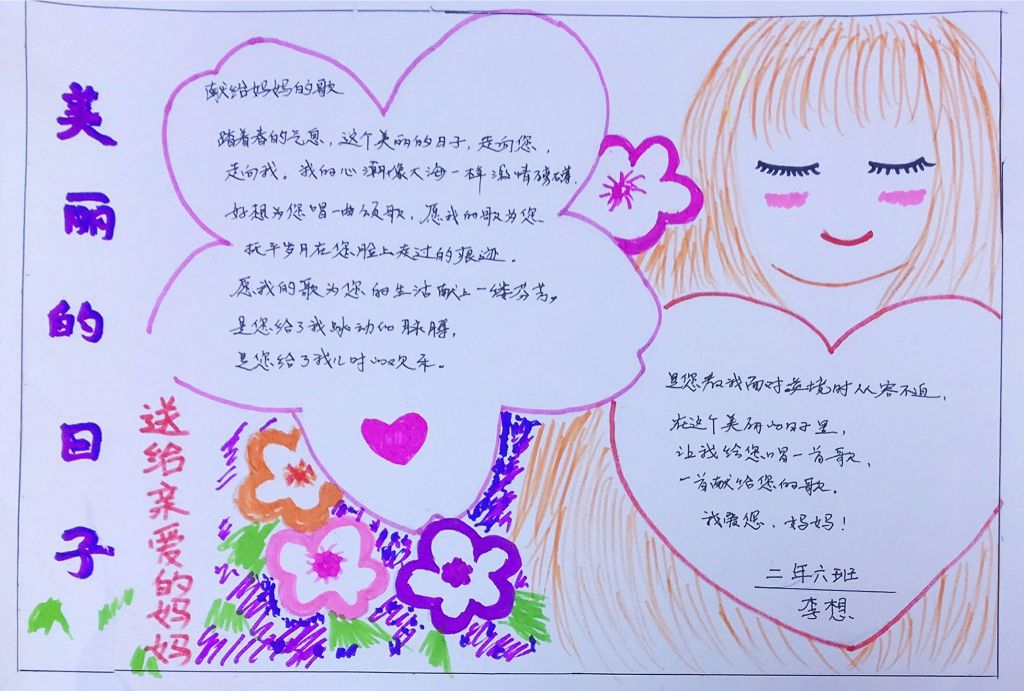 美丽的日子
送给亲爱的妈妈
献给妈妈的歌
踏着春的气息，这个美丽的日子，走向您，
走向我。我的心潮像大海一样激情磅礴，
好想为您唱一曲颂歌，愿我的歌为您、
抚平岁月在您脸上走过的痕迹。
愿我的歌为您的生活献上一缕芬芳。
是您给了我脉动的脉膊，
是您给了我儿时的欢乐。
是您教我面对逆境时从容不迫，
在这个美丽的日子里，
让我给您唱一首歌，
一首献给您的歌。
我爱您、妈妈！
二年六班
李想